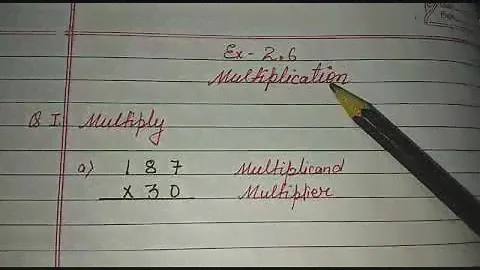 Ex - 2.6
Multiplication
Q I. Multiply
a) 187 Multiplicand
x 30 Multiplier